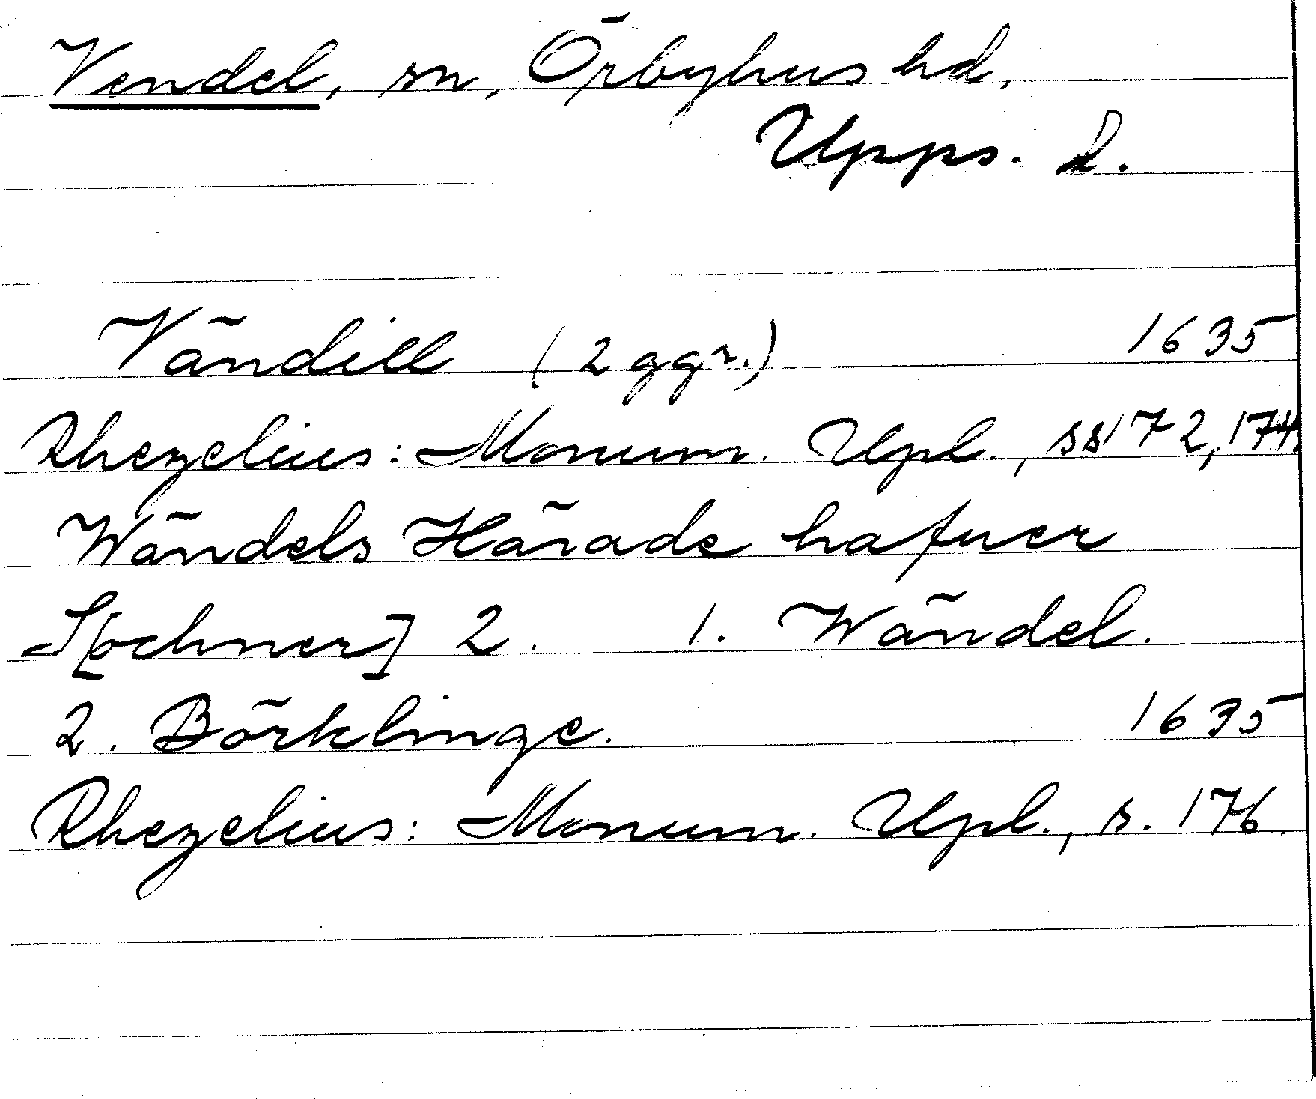 Vendel, sn, Örbyhus hd,
Upps. l.
Vändill (2 ggr.) 1635
Rhezelius: Monum. Upl., ss 172, 174.
Wändels Härade hafuer
S[ochner] 2. 1. Wändel.
2. Börklinge. 1635
Rhezelius: Monum. Upl., s. 176.